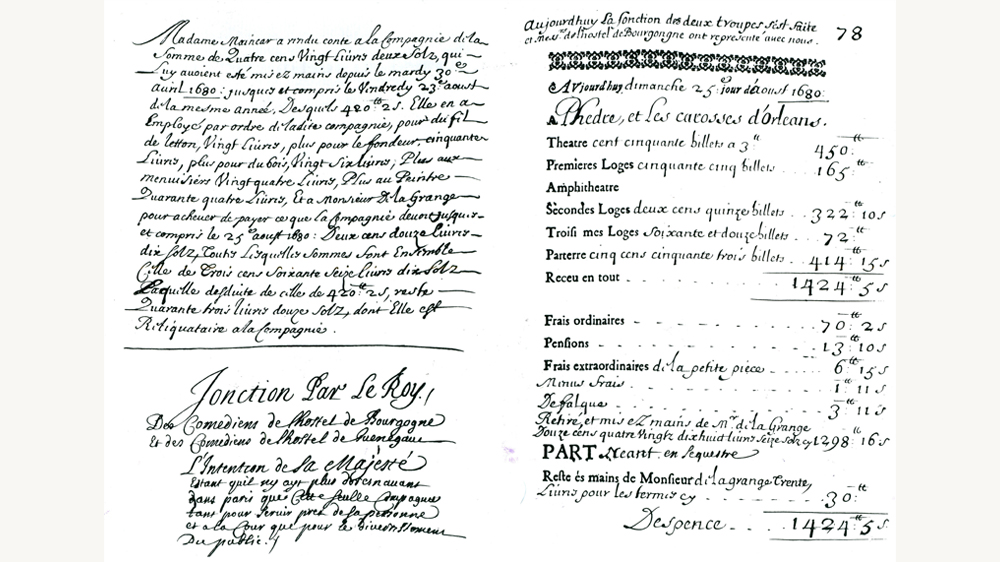 Madame Moincar a rendu conte a la Compagnie de la
Somme de Quatre cens Vingt Liures deux Solz, qui
Luy auoient esté mis ez mains depuis le mardy 30e
auril 1680: jusques et compris le Vendredy 23e aoust
de la mesme année, Desquels 420tt 2s. Elle en a
Employé par ordre de ladite compagnie, pour du fil
de letton, Vingt Liures, plus pour le fondeur, cinquante
Liures, plus pour du bois, Vingt Six liures, Plus aux
menuisiers Vingt quatre Liures, Plus au Peintre
Quarante quatre Liures, Et a Monsieur De la Grange
pour acheuer de payer ce que la Compagnie deuoit jusques
et compris le 25e aoust 1680: Deux cens douze liures
dix Solz, Toutes Lesquelles Sommes font Ensemble
Celle de Trois cens Soixante Seize liures dix Solz
Laquelle desduite de celle de 420tt 2s, reste
Quarante trois liures douze Solz, dont Elle est
Reliquataire a la Compagnie.
Jonction Par Le Roy,
Des Comediens de l'hostel de Bourgogne
Et des Comediens de l'hostel de Guenegaud
L'Intention de Sa Majesté
Estant qu'il n'y ayt plus doresnavant
dans paris que Cette seulle Compagnie
tant pour seruir pres de sa personne
et a la Cour que pour le Diuertissement
Du public.
Aujourdhuy La Jonction des deux troupes s'est faite
et mesrs de l'hostel de Bourgongne ont representé auec nous.
78
AVjourdhuy dimanche 25e jour d'aoust 1680:
A Phedre, et Les carosses d'Orleans.
Theatre cent cinquante billets a 3tt 450:tt
Premieres Loges cinquante cinq billets 165:tt
Amphitheatre
Secondes Loges deux cens quinze billets .. 322:tt 10s
Troisiémes Loges Soixante et douze billets .. 72:tt
Parterre cinq cens cinquante trois billets .. 414:tt 15s
Receu en tout . 1424:tt 5s
Frais ordinaires 70:tt 2s
Pensions 13:tt 10s
Frais extraordinaires de la petite piece 6:tt 15s
Menus frais 1:tt 11s
Defalque 3:tt 11s
Retiré, et mis ez mains de Mr de la Grange
Douze cens quatre Vingtz dix huict liures Seize Solz cy 1298:tt 16s
PART Neant, en sequestre
Reste és mains de Monsieur de la grange Trente,
Liures pour les termes cy 30:tt
Despence 1424:tt 5s